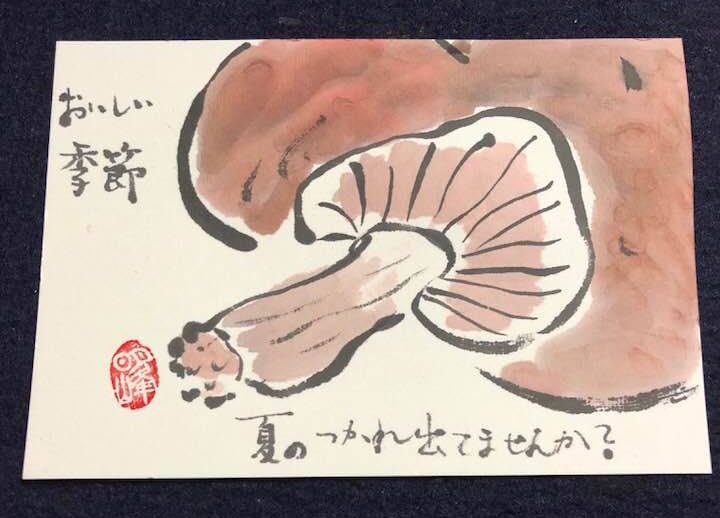 おいしい
季節
夏のつかれ出てませんか?